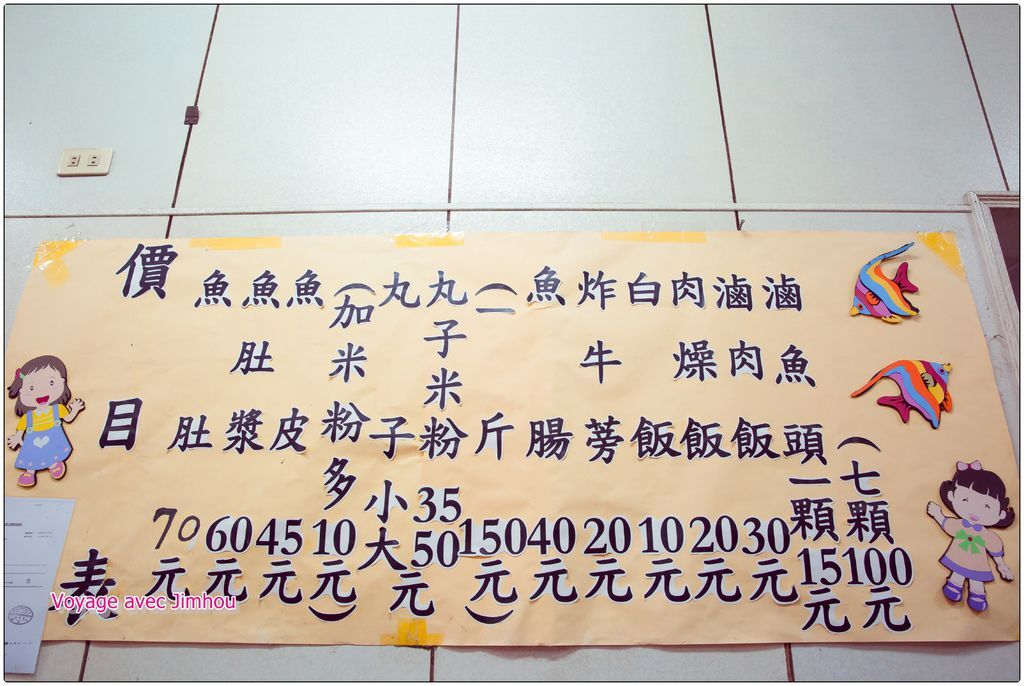 價目表
魚肚70元
魚肚漿60元
魚皮45元
(加米粉多10元)
丸子
丸子米粉
小35
大50元
(一斤150元)
魚腸40元
炸牛蒡20元
白飯10元
肉燥飯20元
滷肉飯30元
滷魚頭一顆15元
(七顆100元
Voyage avec Jimhou